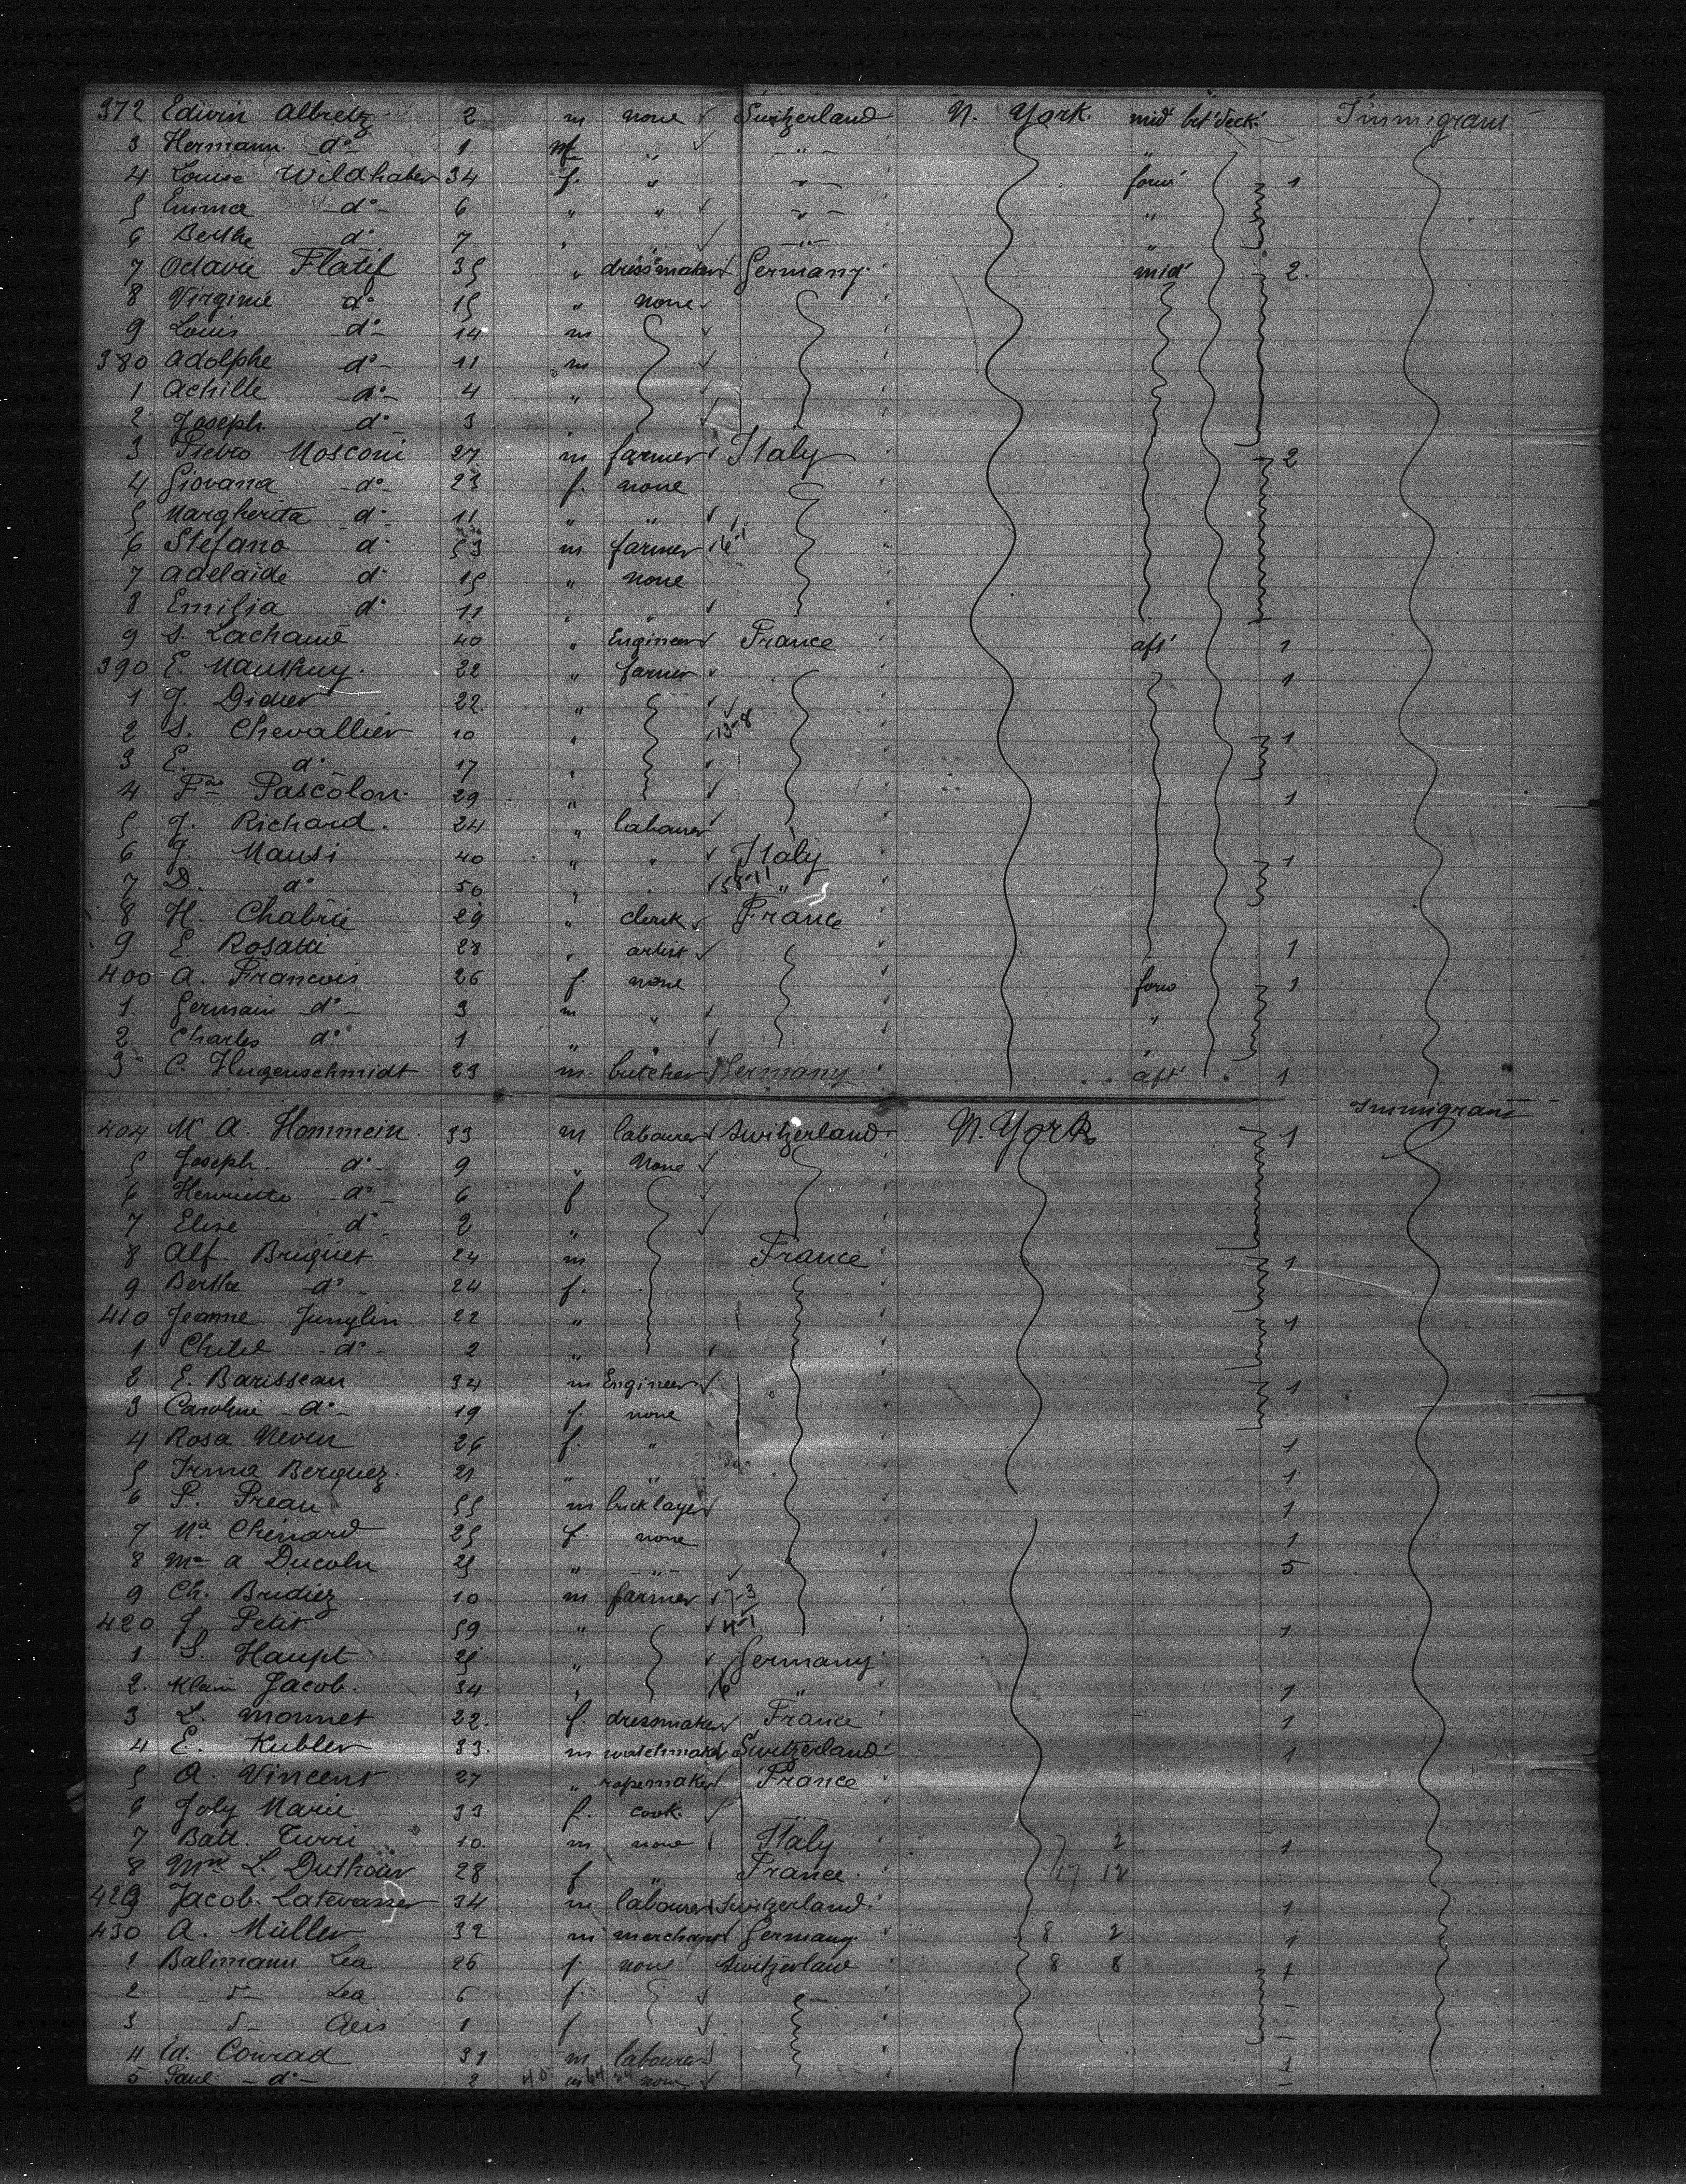 372 Edwin Albretz 2 m none ✓ Switzerland N. York. mid bet' deck. Immigrant
3 Hermann do 1 " ✓ "
4 Louise Wildhaber 34 f. " " forw' 1
5 Emma do 6 " " ✓ " "
6 Berthe do 7 " ✓ " "
7 Octavie Flatif 35 " dressmaker Germany. mid' 2.
8 Virginie do 15 " none ✓
9 Louis do 14 m ✓
380 Adolphe do 11 m ✓
1 Achille do 4 " ✓
2 Joseph do 3 ✓
3 Pietro Mosconi 27 m farmer ✓ Italy 2
4 Giovana do 23 f. none
5 Margherita do 11 " " ✓
6 Stefano do 53 m farmer
7 Adelaide do 15 " none
8 Emilia do 11 " " ✓
9 S. Lachaume 40 " Engineer ✓ France aft' 1
390 E. Mauthuy. 22 " farmer ✓ 1
1 J. Didier 22. " ✓
2 S. Chevallier 10 " 13-8 1
3 E. do 17 " ✓
4 Fois Pascolon. 29 " ✓ 1
5 J. Richard. 24 " labourer ✓
6 J. Mausi 40 " " ✓ Italy 1
7 D. do 50 " " ✓ 58-11 "
8 H. Chabrié 29 " clerk ✓ France
9 E. Rosatti 28 " artist ✓ 1
400 A. Francois 26 f. none forw 1
1 Germain do 3 m " ✓ "
2 Charles do 1 " " ✓
3 C. Hugenschmidt 23 m. butcher Germany aft' 1
Immigrant
404 M A. Hommein. 33 m labourer Switzerland N. York 1
5 Joseph. do 9 " None ✓
6 Henriette do 6 f ✓
7 Elise do 2 " ✓
8 Alf. Bruguet 24 m France 1
9 Berthe do 24 f.
410 Jeanne Junglin 22 " 1
1 Child do 2 " ✓
2 E. Barisseau 34 m Engineer ✓ 1
3 Caroline do 19 f. none
4 Rosa Neven 26 f. " 1
5 Irma Berquez. 21 " " 1
6 P. Preau 55 m bricklayer 1
7 Chénard 25 f. none 1
8 Me A Ducoln " " 5
9 Ch. Bridiez 10 m farmer ✓ 7-3
420 J. Petit 59 " ✓ 4-1 1
1 S. Haupt " ✓ Germany
2. Klein Jacob. 34 " " 1
3 L. Monnet 22. f. dressmaker France 1
4 E. Kubler 33. m watchmaker Switzerland 1
5 A. Vincent 27 " ropemaker France
6 Joly Marie 33 f. cook. ✓ "
7 Batt. Turri 10 m none Italy 2 1
8 Me L. Duthour 28 f " France. 17 12
429 Jacob. 34 m labourer Switzerland. 1
430 A. Müller 32 m merchant Germany 8 2 1
1 Balimann Lea 26 f. none Switzerland 8 8 1
2 do Lea 6 f. ✓
3 do 1 f ✓
4 Ed. Conrad 31 m labourer 1
5 Paul do 2 m none ✓